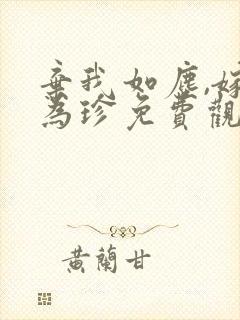 棄我如塵,嫁
為珍免費觀
黃蘭甘